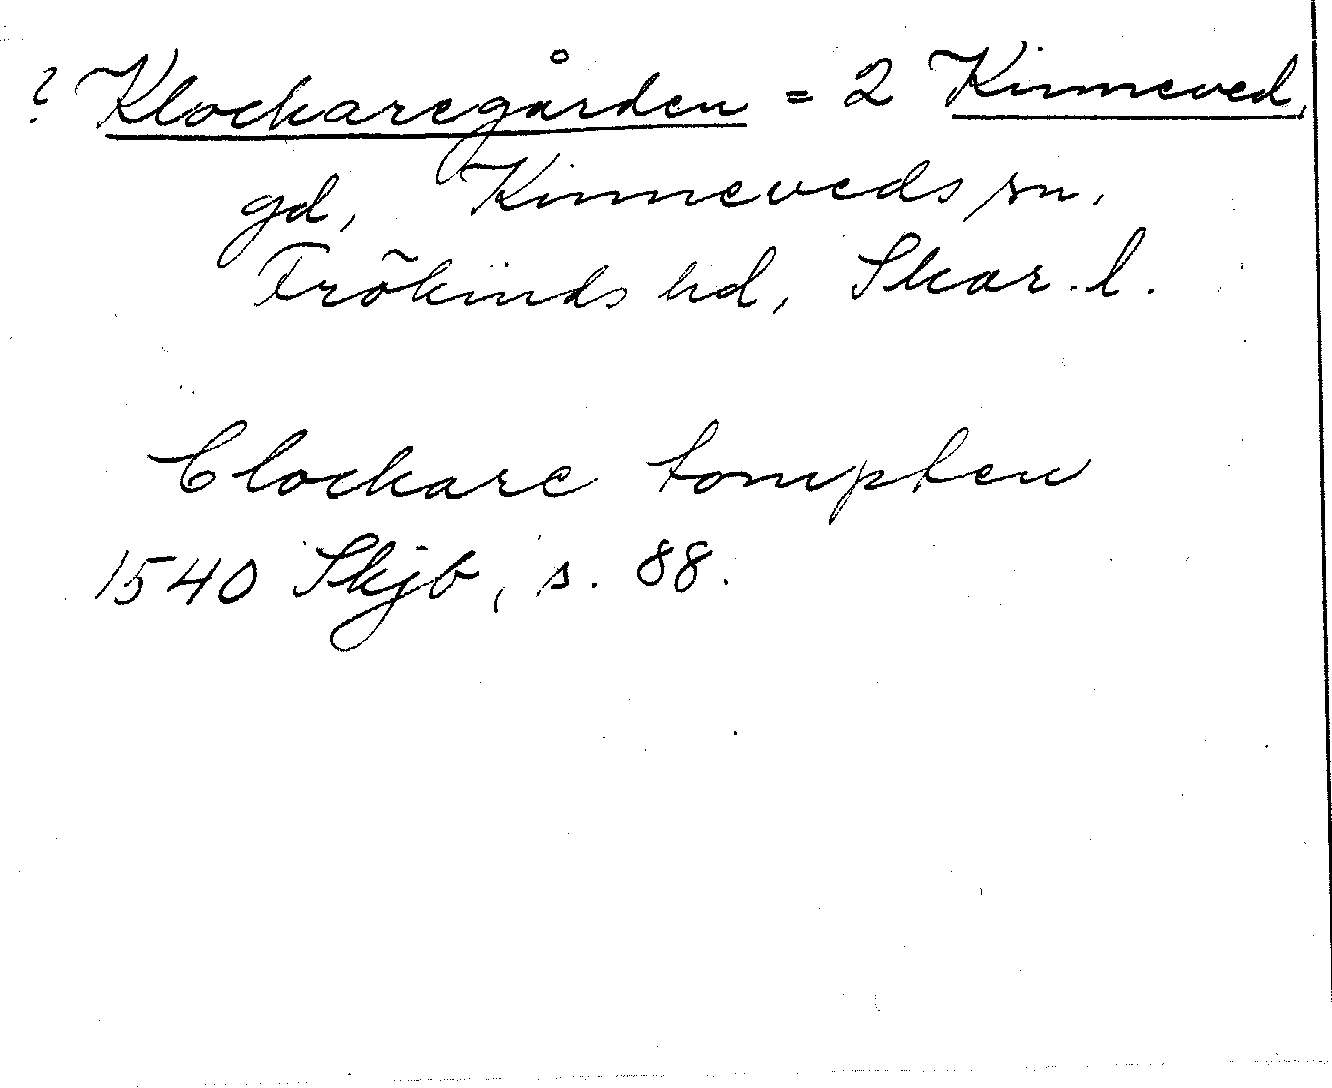 ? Klockaregården = 2 Kinneved,
gd, Kinneveds sn.
Frökinds hd, Skar. l.
Clockare tompten
1540 Skjb, s. 88.